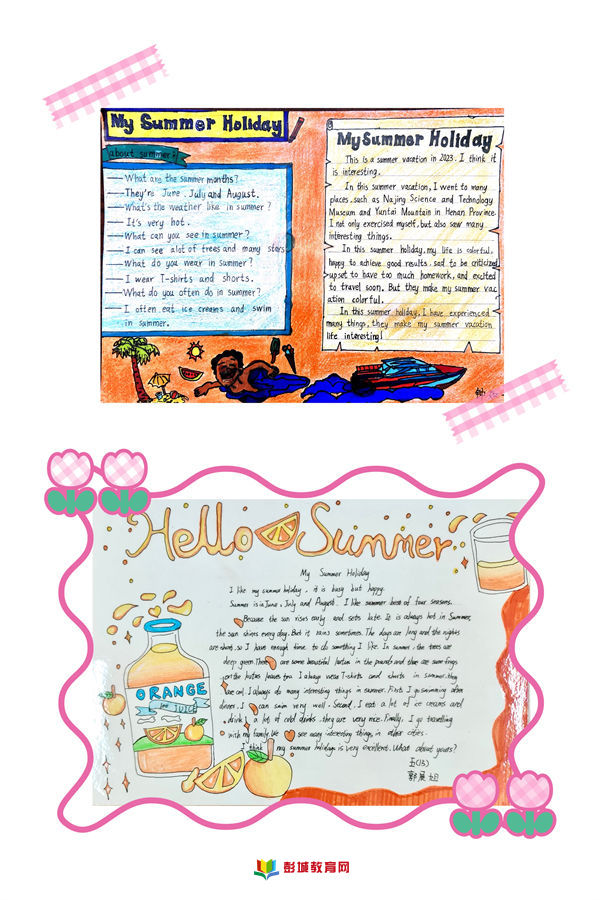 My Summer Holiday
about summer
What are the summer months?
They're June, July and August.
What's the weather like in summer?
It's very hot.
What can you see in summer?
I can see alot of trees and many stars
What do you wear in summer?
I wear T-shirts and shorts.
What do you often do in summer?
I often eat ice creams and swim
in summer.
My Summer Holiday
This is a summer vacation in 2023. I think it
is interesting.
In this summer vacation, I went to many
places, such as Najing Science and Technology
Museum and Yuntai Mountain in Henan Province.
I not only exercised myself, but also saw many
interesting things.
In this summer holiday, my life is colorful,
happy to achieve good results, sad to be criticized,
upset to have too much homework, and excited
to travel soon. But they make my summer vac
ation colorful.
In this summer holiday, I have experienced
many things, they make my summer vacation
life interesting!
Hello Summer
My Summer Holiday
I like my summer holiday, it is busy but happy.
Summer is in June, July and August. I like summer best of four seasons.
Because the sun rises early and sets late. It is always hot in Summer,
the sun shines every day. But it rains sometimes. The days are long and the nights
are short, so I have enough time to do something I like. In summer, the trees are
deep green. There are some beautiful lotus in the and there are some frogs
on the lotus leaves too. I always wear T-shirts and shorts in summer, they
are cool. I always do many interesting things in summer. First, I go swimming after
dinner. I can swim very well. Second, I eat a lot of ice creams and
drink a lot of cold drinks, they are very nice. Finally, I go travelling
with my family. We see many interesting things in other cities.
I think my summer holiday is very excellent. What about yours?
五(13)
郭展
ORANGE
JUICE
彭城教育网